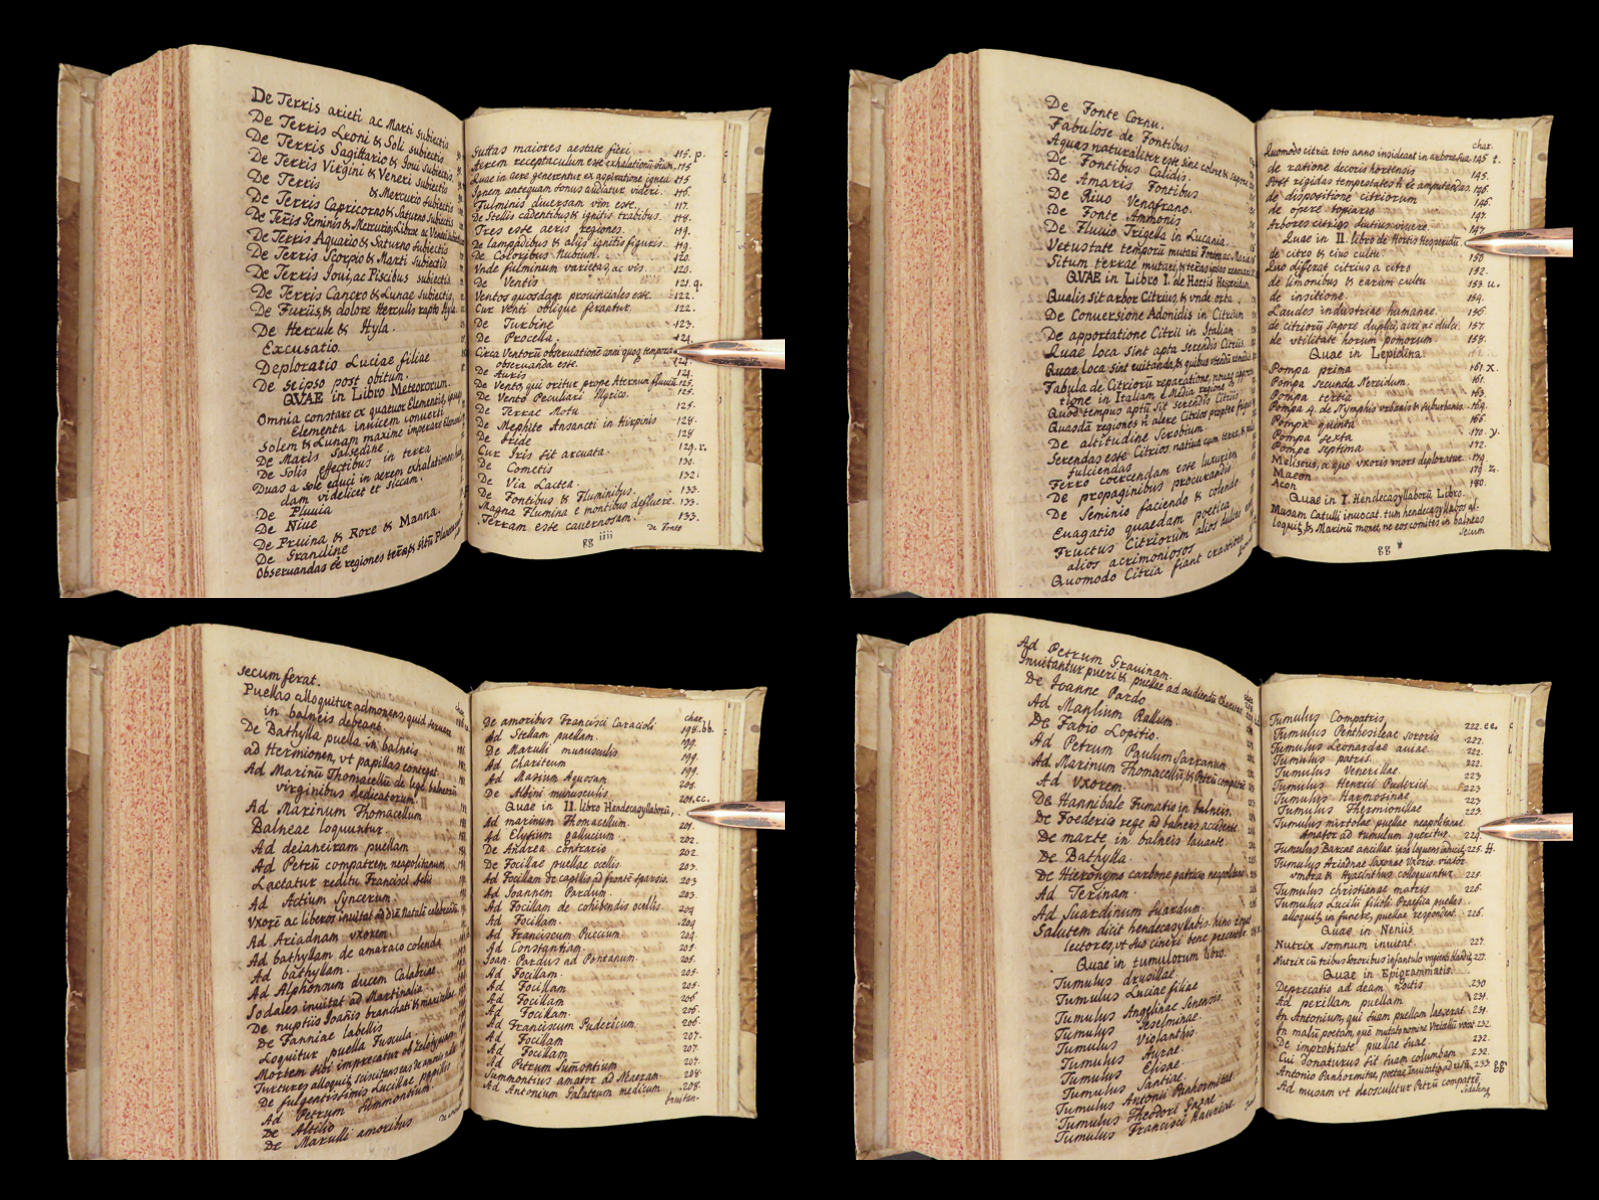 De Terris arieti ac Marti subiectis
De Terris Leoni & Soli subiectis
De Terris Sagittario & Ioui subiectis
De Terris Virgini & Veneri subiectis
De Terris & Mercurio subiectis
De Terris Capricorno & Saturno subiectis
De Terris Geminis & Mercurio, Librae ac Veneri
De Terris Aquario & Saturno subiectis
De Terris Scorpio & Marti subiectis
De Terris Ioui, ac Piscibus subiectis
De Terris Cancro & Lunae subiectis
De Furiis, & dolore Herculis rapto Hyla
De Hercule & Hyla.
Excusatio.
Deploratio Luciae filiae
De seipso post obitum.
QVAE in Libro Meteororum.
Omnia constare ex quatuor Elementis,
Elementa inuicem conuerti
Solem & Lunam maxime imperare
De Maris Salsedine
De Solis effectibus in terra
Duas a sole educi in aerem exhalationes
dam videlicet et siccam.
De Pluuia
De Niue
De Pruina & Rore & Manna.
De Grandine
Obseruandas ēē regiones
Guttas maiores aestate fieri 115. p.
Aerem receptaculum este exhalationū 115
Quae in aere generentur ex aspiratione ignea 115
Ignem antequam sonus audiatur videri. 116.
Fulminis diuersam vim este. 117.
De Stellis cadentibus & ignitis trabibus. 118.
Tres este aeris regiones. 119.
De lampadibus & alijs ignitis figuris. 119.
De Coloribus Nubium. 120.
Vnde fulminum varietas, ac vis. 120.
De Ventis 121 q.
Ventos quosdam prouinciales este. 122.
Cur Venti oblique ferantur. 122.
De Turbine 123.
De Procella. 124.
Circa Ventorū obseruationē anni quoq tempora
obseruanda este. 124.
De Auris 124.
De Vento, qui oritur prope Aternum fluuiū 125.
De Vento Peculiari Illyrico. 125.
De Terrae Motu 125.
De Mephite Ansancti in Hirpinis 128.
De Iride 128
Cur Iris sit arcuata. 129. r.
De Cometis 130.
De Via Lactea. 132.
De Fontibus & Fluminibus. 133.
Magna Flumina e montibus defluere. 133.
Terram este cauernosam. 133.
gg iiii
De Fonte
De Fonte Cornu.
Fabulose de Fontibus
Aquas naturaliter este sine colore & sapore
De Fontibus Calidis.
De Amaris Fontibus
De Riuo Venafrano.
De Fonte Ammonis
De Fluuio Trigella in Lucania.
Vetustate temporū mutari
Situm terrae mutari,
QVAE in Libro I. de Hortis Hesperidum
Qualis sit arbor Citrius, & vnde orta.
De Conuersione Adonidis in Citrium
De apportatione Citrii in Italiam
Quae loca sint apta serendis Citriis.
Quae loca sint euitanda, & quibus
Fabula de Citriorū reparatione,
tione in Italiam e Media regione
Quod tempus aptū sit serendis Citriis
Quasdā regiones
De altitudine Scrobium.
Serendas este Citrios
fulciendas
Ferro coercendam este luxuriem
De propaginibus procurandis
De Seminio faciendo & colendo
Euagatio quaedam poetica
Fructus Citriorum alios dulces
alios acrimoniosos
Quomodo Citria fiant
char.
Quomodo citria toto anno insideant in arbore sua. 145 t.
de ratione decoris hortensis 145.
Post rigidas tempestates 146.
de dispositione citriorum 146.
de opere topiario 147.
Arbores citrios diutius viuere. 147
Quae in II. libro de Hortis Hesperidū.
de citro & eius cultu 150
Quo differat citrius a citro 152.
de limonibus & earum cultu 153 u.
de insitione. 154.
Laudes industriae humanae. 156
de citriorū sapore duplici, acri ac dulci. 157.
de vtilitate horum pomorum 158.
Quae in Lepidina.
Pompa prima 161. x.
Pompa Secunda Nereidum. 161.
Pompa tertia 163.
Pompa 4. de Nymphis vrbanis & Suburbanis. 164.
Pompa quinta 166.
Pompa sexta 170. y.
Pompa septima 172.
Meliseus, a quo vxoris mors deploratur. 174.
Maeon 179. z.
Acon 180.
Quae in I. Hendecasyllaborū Libro.
Musam Catulli inuocat. tum hendecasyllabos al.
loquit, & Marinū monet, ne eos comites in balneas
secum
secum ferat.
Puellas alloquitur admonens, quid
in balneis debeant.
De Bathylla puella in balneis
ad Hermionen, vt papillas contegat.
Ad Marinū Thomacellū de lege balnearū
virginibus dedicatorum.
Ad Marinum Thomacellum
Balneae loquuntur.
Ad deianeiram puellam
Ad Petrū compatrem neapolitanum
Laetatur reditu Francisci Aelii
Ad Actium Syncerum.
Vxorē ac liberos inuitat
Ad Ariadnam vxorem.
Ad bathyllam de amaraco colenda
Ad bathyllam.
Ad Alphonsum ducem Calabriae.
Sodales inuitat ad Martinalia.
De nuptiis Ioañis branchati &
De Fanniae labellis
Loquitur puella Fuscula.
Mortem sibi imprecatur ob Zelotypiam.
Turtures alloquit,
De fulgentissimis Lucillae papillis
Ad Petrum Summontium
De Altilio
De Marulli amoribus
char.
De amoribus Francisci Caracioli 198. bb.
Ad Stellam puellam. 199.
De Marulli munusculis 199.
Ad Chariteum 199.
Ad Masium Aquosam 200.
De Albini munusculis. 200.
Quae in II. libro Hendecasyllaborū. cc.
Ad marinum Thomacellum. 201.
Ad Elysium gallucium. 202.
De Andrea contrario 202.
De Focillae puellae ocellis. 203.
Ad Focillam de capillis ad frontē sparsis. 203
Ad Ioannem Pardum. 203.
Ad Focillam de cohibendis ocellis. 204
Ad Focillam. 204
Ad Franciscum Puccium 204.
Ad Constantiam. 205.
Ioan. Pardus ad Pontanum. 205.
Ad Focillam. 205.
Ad Focillam 205.
Ad Focillam. 206
Ad Franciscum Pudericum. 206.
Ad Focillam 207.
Ad Focillam 207.
Ad Petrum Sumontium 207.
Summontius amator ad Neaeram 208.
Ad Antonium Galateum medicum 208.
Inuitan.
Ad Petrum Grauinam.
Inuitantur pueri & puellae ad audiendū
De Ioanne Pardo
Ad Manlium Rallum.
De Fabio Lopitio.
Ad Petrum Paulum Sarranum
Ad Marinum Thomacellū, & Petrū compatrē
Ad Vxorem.
De Hannibale Funatis in balneis.
De Foederico rege ad balneas accedente
De marte in balneis lauante
De Bathylla
De Hieronymo carbone patricio neapolitano
Ad Terinam.
Ad Suardinum Suardum.
Salutem dicit hendecasyllabis. hinc inquit
lectores, vt suo cineri bene precentur
Quae in tumulorum libro.
Tumulus drusillae.
Tumulus Luciae filiae
Tumulus Angelinae Senensis.
Tumulus Geselminae.
Tumulus Violanthis
Tumulus Aurae.
Tumulus Elisae
Tumulus Santiae.
Tumulus Antonii Panhormitae.
Tumulus Theodori Gazae
Tumulus Francisci
Tumulus Compatris 222. ee.
Tumulus Penthesileae sororis 222.
Tumulus Leonardae auiae. 222.
Tumulus patris. 222.
Tumulus Venerillae. 223
Tumulus Henrici Puderici 223
Tumulus Harmosinae 223
Tumulus Thermionillae 223.
Tumulus mirtolae puellae neapolitanae
Amator ad tumulum queritur. 224.
Tumulus Barcae ancillae 225. ff.
Tumulus Ariadnae Saxonae Vxoris. viator
vmbra & Hyacinthus colloquuntur. 225.
Tumulus christianae matris 226.
Tumulus Lucilii filioli. Praefica puellas
alloquit, in funere, puellae respondent. 226.
Quae in Neniis
Nutrix somnum inuitat. 227.
Nutrix cū tribus sororibus infantulo vagienti blandit, 227.
Quae in Epigrammatis.
Deprecatio ad deam noctis 230
Ad perillam puellam 231.
In Antonium, qui suam puellam laeserat. 231.
In malū poetam, quē mutato nomine Vesuillū vocat. 232.
De improbitate puellae suae. 232.
Cui donaturus sit suam columbam. 232.
Antonio Panhormitae, poetae 233. gg
Ad musam vt deosculetur Petrū compatrē.